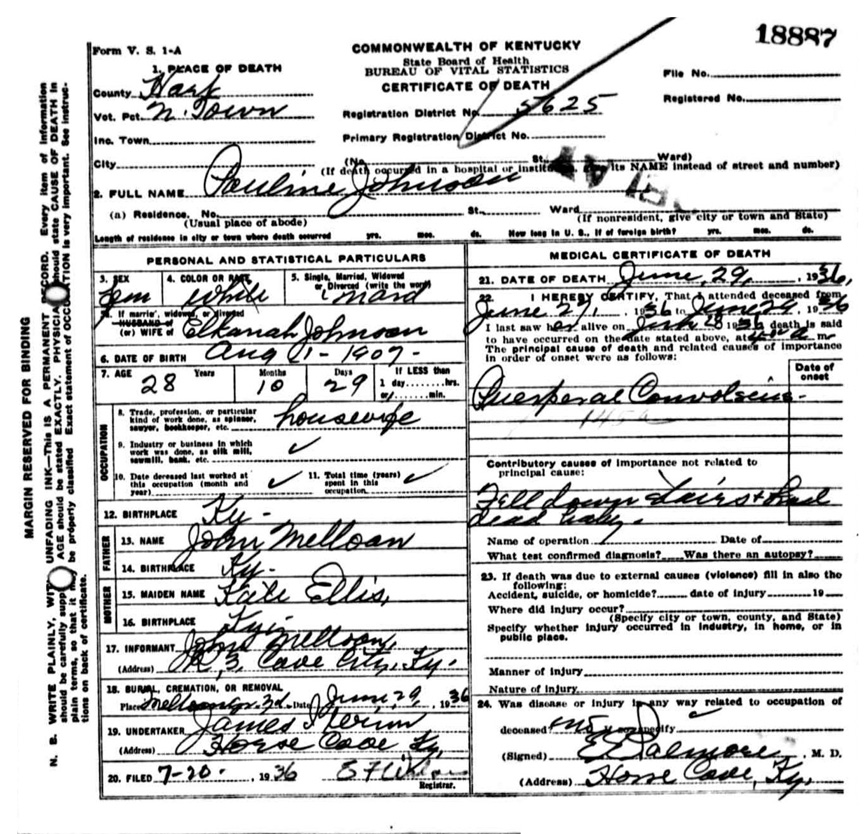 18887
Form V. S. 1-A
COMMONWEALTH OF KENTUCKY
State Board of Health
BUREAU OF VITAL STATISTICS
CERTIFICATE OF DEATH
File No.
Registered No.
1. PLACE OF DEATH
County Hart
Vot. Pct. N. Town
Registration District No. 5625
Inc. Town
Primary Registration District No.
City (No. St. Ward)
(If death occurred in a hospital or institution, give its NAME instead of street and number)
2. FULL NAME Pauline Johnson
(a) Residence. No. St. Ward
(Usual place of abode) (If nonresident, give city or town and State)
Length of residence in city or town where death occurred yrs. mos. ds. How long in U. S., if of foreign birth? yrs. mos. ds.
PERSONAL AND STATISTICAL PARTICULARS
3. SEX 4. COLOR OR RACE 5. Single, Married, Widowed or Divorced (write the word)
Fem White Mard
If married, widowed, or divorced
HUSBAND of
(or) WIFE of Elkanah Johnson
6. DATE OF BIRTH Aug 1-1907-
7. AGE Years Months Days If LESS than
28 10 29 1 day........hrs.
or........min.
OCCUPATION
8. Trade, profession, or particular kind of work done, as spinner, sawyer, bookkeeper, etc. housewife
9. Industry or business in which work was done, as silk mill, sawmill, bank, etc. ✓
10. Date deceased last worked at this occupation (month and year) ✓
11. Total time (years) spent in this occupation ✓
12. BIRTHPLACE Ky-
FATHER
13. NAME John Melloan
14. BIRTHPLACE Ky-
MOTHER
15. MAIDEN NAME Kate Ellis,
16. BIRTHPLACE Ky-
17. INFORMANT John Melloan,
(Address) R, 3, Cave City, Ky.
18. BURIAL, CREMATION, OR REMOVAL
Place Date June 29, 1936
19. UNDERTAKER James
(Address) Horse Cave Ky,
20. FILED 7-20-, 1936
Registrar.
MEDICAL CERTIFICATE OF DEATH
21. DATE OF DEATH June, 29, , 1936,
22. I HEREBY CERTIFY, That I attended deceased from
June 27, 1936 to June 29, 1936
I last saw her alive on 1936 death is said
to have occurred on the date stated above, at m.
The principal cause of death and related causes of importance
in order of onset were as follows:
Date of onset
Puerperal Convolsins-
Contributory causes of importance not related to
principal cause:
Fell down stairs & had
dead baby-
Name of operation Date of
What test confirmed diagnosis? Was there an autopsy?
23. If death was due to external causes (violence) fill in also the
following:
Accident, suicide, or homicide? date of injury 19
Where did injury occur?
(Specify city or town, county, and State)
Specify whether injury occurred in industry, in home, or in
public place.
Manner of injury
Nature of injury
24. Was disease or injury in any way related to occupation of
deceased
(Signed) , M. D.
(Address) Horse Cave, Ky,
MARGIN RESERVED FOR BINDING
N. B. WRITE PLAINLY, WITH UNFADING INK—THIS IS A PERMANENT RECORD. Every item of information
should be carefully supplied. AGE should be stated EXACTLY. PHYSICIANS should state CAUSE OF DEATH in
plain terms, so that it may be properly classified. Exact statement of OCCUPATION is very important. See instruc-
tions on back of certificate.